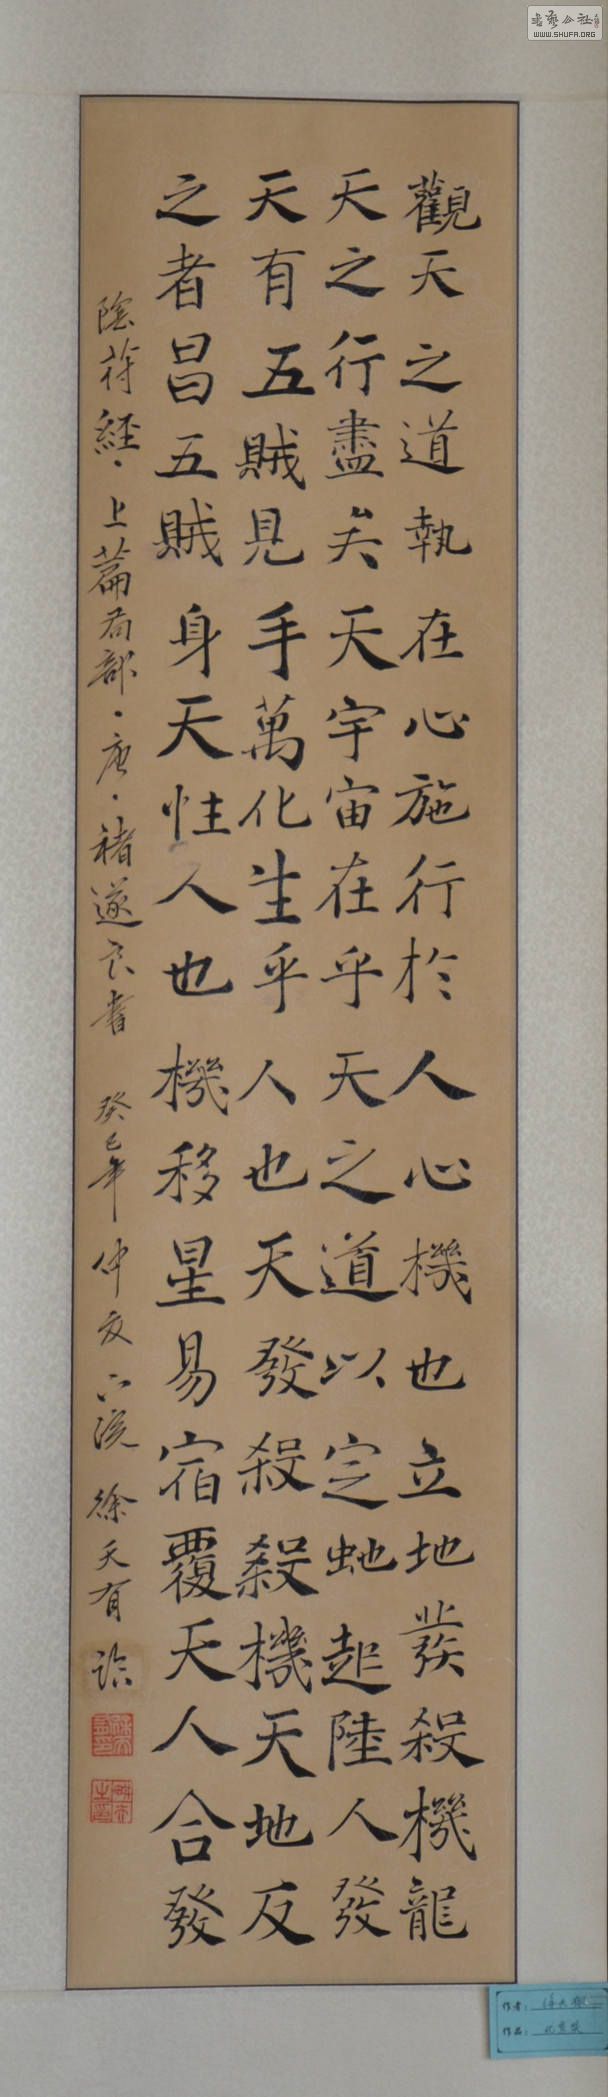 書藝公社
WWW.SHUFA.ORG
觀天之道執在心施行於人心機也立地發殺機龍
天之行盡矣天宇宙在乎天之道以定虵起陸人發
天有五賊見手萬化生乎人也天發殺殺機天地反
之者昌五賊身天性人也機移星易宿覆天人合發
陰符經·上篇局部·唐·褚遂良書 癸巳年仲夏 徐天有 臨
作者：徐天有
作品：